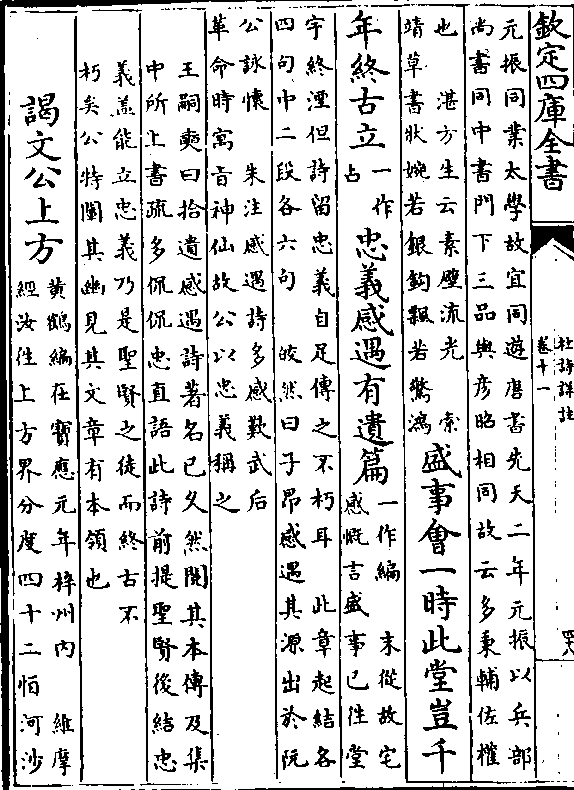 欽定四庫全書
杜詩詳註
卷十一
元振同業太學故宜同遊唐書先天二年元振以兵部
尚書同中書門下三品與彥昭相同故云多秉輔佐權
也　湛方生云素壁流光　索
靖草書狀婉若銀鈎飄若驚鴻
盛事會一時此堂豈千
年終古立
一作
占
忠義感遇有遺篇
一作編　末從故宅
感慨言盛事已往堂
宇終湮但詩留忠義自足傳之不朽耳　此章起結各
四句中二段各六句　皎然曰子昂感遇其源出於阮
公詠懷　朱注感遇詩多感歎武后
革命時寓旨神仙故公以忠義稱之
王嗣奭曰拾遺感遇詩著名已久然閱其本傳及集
中所上書疏多侃侃忠直語此詩前提聖賢後結忠
義蓋能立忠義乃是聖賢之徒而終古不
朽矣公特闡其幽見其文章有本領也
謁文公上方
黃鶴編在寶應元年梓州內　維摩
經汝往上方界分度四十二恒河沙